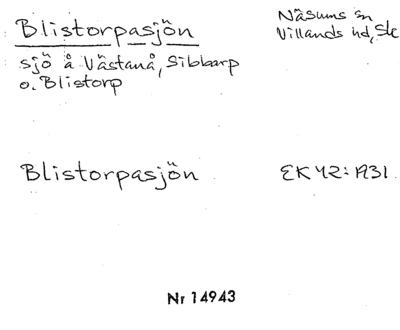 Blistorpasjön
Näsums sn
Villands hd, Sk
sjö å Västanå, Sibbarp
o. Blistorp
Blistorpasjön
EK 42: 1931.
Nr 14943